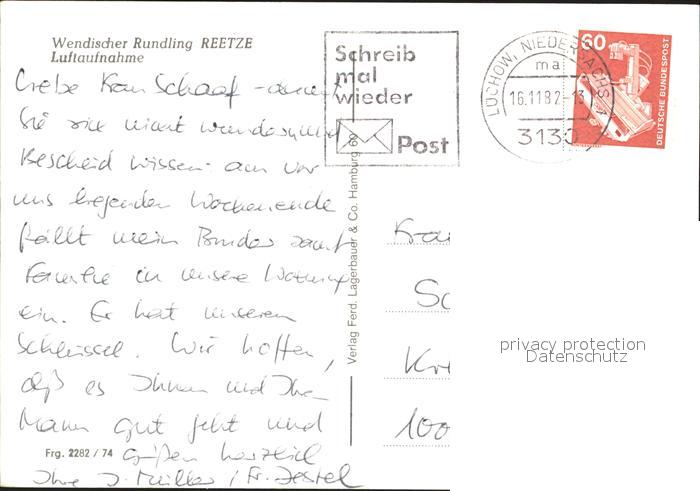 Wendischer Rundling REETZE
Luftaufnahme
Liebe Frau Schaaf - damit
Sie sich nicht wundern und
Bescheid wissen: am vor
uns liegenden Wochenende
fällt mein Bruder samt
Familie in unsere Wohnung
ein. Er hat unseren
Schlüssel. Wir hoffen,
daß es Ihnen und Ihrem
Mann gut geht und
grüßen herzlich
Ihre J. Müller / Fr.
Frg. 2282 / 74
Verlag Ferd. Lagerbauer & Co. Hamburg 60
Schreib
mal
wieder
Post
LÜCHOW, NIEDERSACHS 1
ma
16.11.82-13
3130
60
DEUTSCHE BUNDESPOST
Frau
Sc
Kre
100
privacy protection
Datenschutz